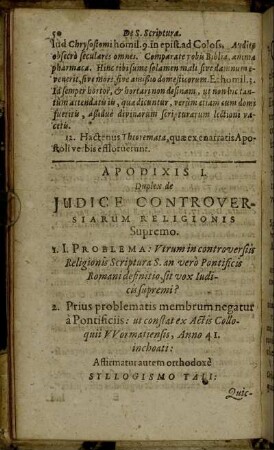 50 De S. Scriptura.
Iud Chrysostomi homil. 9. in epist. ad Coloss. Audite
obsecro seculares omnes. Comparate vobis Biblia, animæ
pharmaca. Hinc tibi sume solamen mali, sive damnum e-
venerit, sive mors, sive amissio domesticorum. Et homil. 3.
Id semper hortor, & hortari non desinam, ut non hic tan-
tùm attendatis iis, quæ dicuntur, verùm etiam cum domi
fueritis, assiduè divinarum scripturarum lectioni va-
cetis.
12. Hactenus Theoremata, quæ ex enarratis Apo-
stoli verbis effloruerunt.
APODIXIS I.
Duplex de
JUDICE CONTROVER-
SIARUM RELIGIONIS
Supremo.
1. I. PROBLEMA: Utrum in controversiis
Religionis Scriptura S. an verò Pontificis
Romani definitio, sit vox Iudi-
cis supremi?
2. Prius problematis membrum negatur
à Pontificiis: ut constat ex Actis Collo-
quii VVormatiensis, Anno 41.
inchoati:
Affirmatur autem orthodoxè
SYLLOGISMO TALI:
Quic-